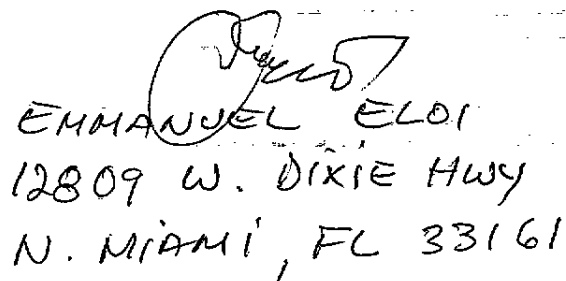 EMMANUEL ELOI
12809 W. DIXIE HWY
N. MIAMI, FL 33161